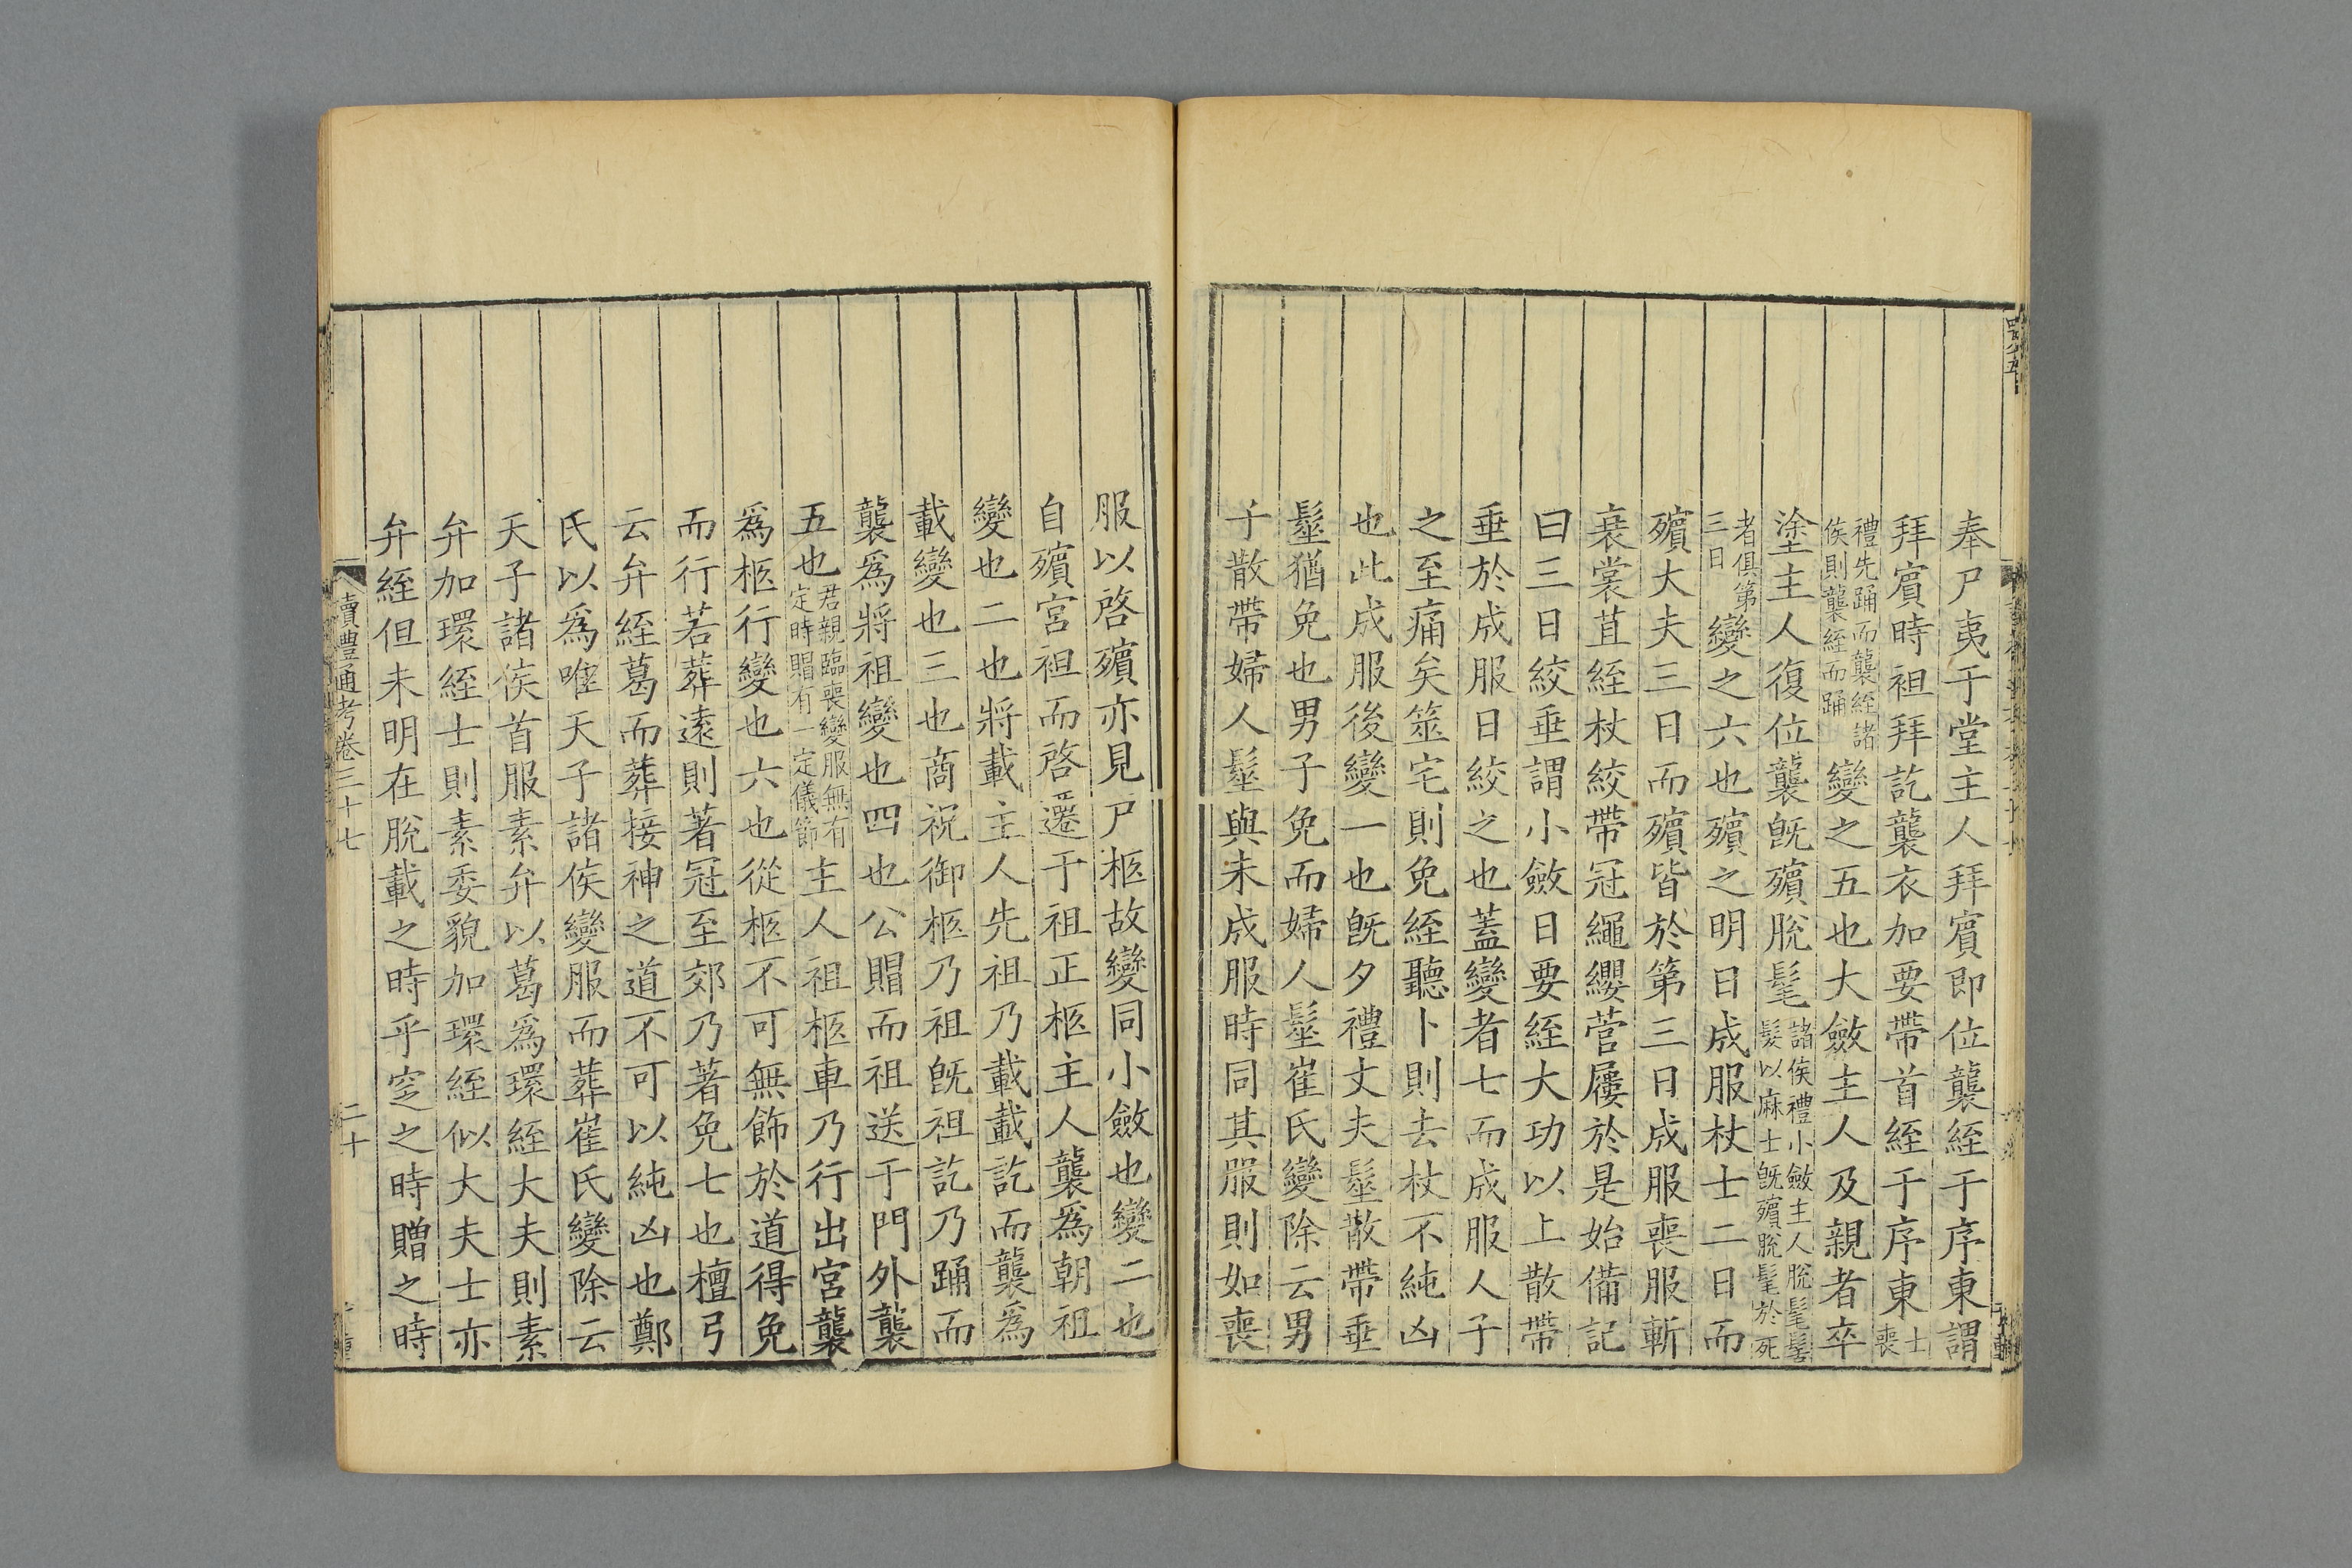 奉尸夷于堂主人拜賓即位襲絰于序東謂
拜賓時袒拜訖襲衣加要帶首絰于序東士喪
禮先踊而襲絰諸侯則襲絰而踊變之五也大斂主人及親者卒
塗主人復位襲旣殯脫髦諸侯禮小斂主人脫髦髺髮以麻士旣殯脫髦於死
者俱第三日變之六也殯之明日成服杖士二日而
殯大夫三日而殯皆於第三日成服喪服斬
衰裳苴絰杖絞帶冠繩纓菅屨於是始備記
曰三日絞垂謂小斂日要絰大功以上散帶
垂於成服日絞之也蓋變者七而成服人子
之至痛矣筮宅則免絰聽卜則去杖不純凶
也此成服後變一也旣夕禮丈夫髽散帶垂
髽猶免也男子免而婦人髽崔氏變除云男
子散帶婦人髽與未成服時同其服則如喪
服以啓殯亦見尸柩故變同小斂也變二也
自殯宮袒而啓遷于祖正柩主人襲爲朝祖
變也二也將載主人先袒乃載載訖而襲爲
載變也三也商祝御柩乃祖旣祖訖乃踊而
襲爲將祖變也四也公賵而袒送于門外襲
五也君親臨喪變服無有定時賵有一定儀節主人袒柩車乃行出宮襲
爲柩行變也六也從柩不可無飾於道得免
而行若葬遠則著冠至郊乃著免七也檀弓
云弁絰葛而葬接神之道不可以純凶也鄭
氏以爲唯天子諸侯變服而葬崔氏變除云
天子諸侯首服素弁以葛爲環絰大夫則素
弁加環絰士則素委貌加環絰似大夫士亦
弁絰但未明在脫載之時乎窆之時贈之時
讀禮通考卷三十七
二十